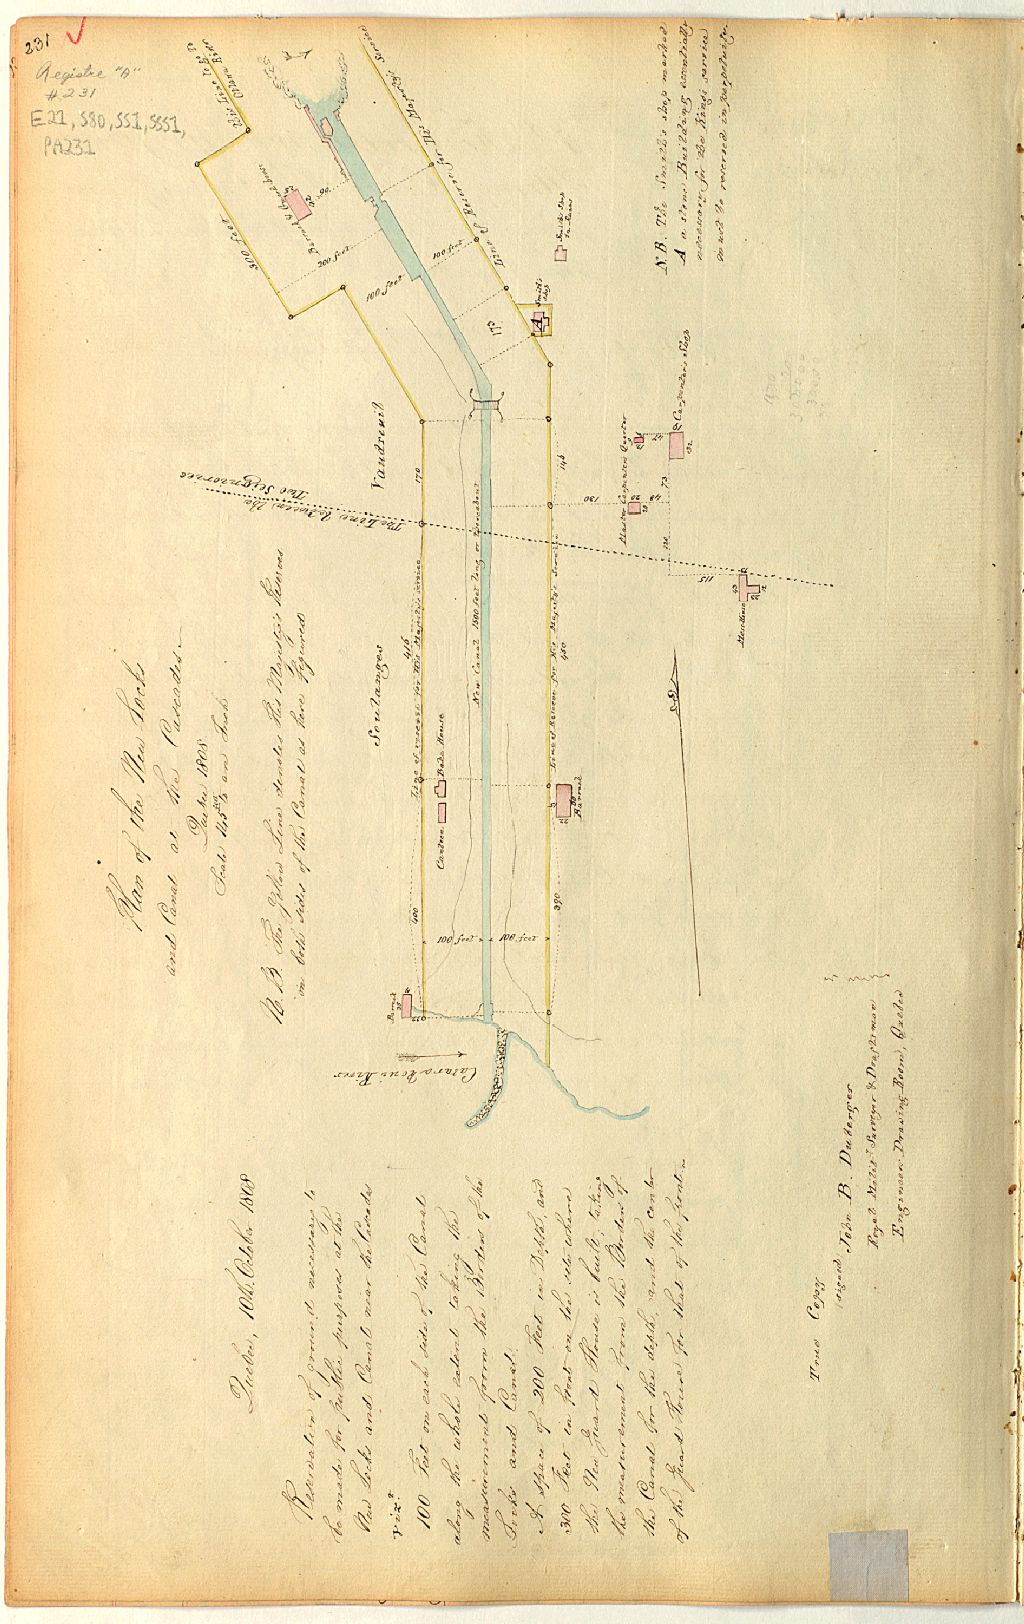 231
Registre "A"
# 231
E21, S80, SS1, SSS1,
PA231
Plan of the New Locks
and Canal at the Cascades
Quebec 1808
Scale to an Inch
N.B. The Yellow Line denotes His Majesty's Reserves
on both sides of the Canal as here Figured
The Line between the
Two Seigniories
Vandreuil
Soulanges
300 feet
200 feet
100 feet
100 feet
90
30
173
Line of Reserve for His Majesty's Service
Smith's
Shop
A
N.B. The Smith's shop marked
A a stone Building essentially
necessary for the Kings service
to be reserved in perpetuity.
170
416
400
Line of reserve for His Majesty's service
New Canal 1500 feet long or thereabout
Line of Reserve for His Majesty's Service
146
480
390
130
Master Carpenters Quarter
Carpenters Shop
24
32
73
48
20
120
115
43
Canteen
Bake House
Barrack
50
100 feet
100 feet
Catarakoui River
Quebec, 10th. October 1808
Reservation of ground necessary to
be made for public purposes at the
New Locks and Canal near the Cascades
Vizt.
100 Feet on each side of the Canal
along the whole extent taking the
measurement from the Borders of the
Locks and Canal.
A space of 200 Feet in Depth, and
300 Feet in front on the side where
the New Guard House is built, taking
the measurement from the Borders of
the Canal for the depth, and the center
of the Guard House for that of the front.
True Copy
(signed) John B. Duberger
Royal Milit. Surveyor & Draftsman
Engineers Drawing Room, Quebec